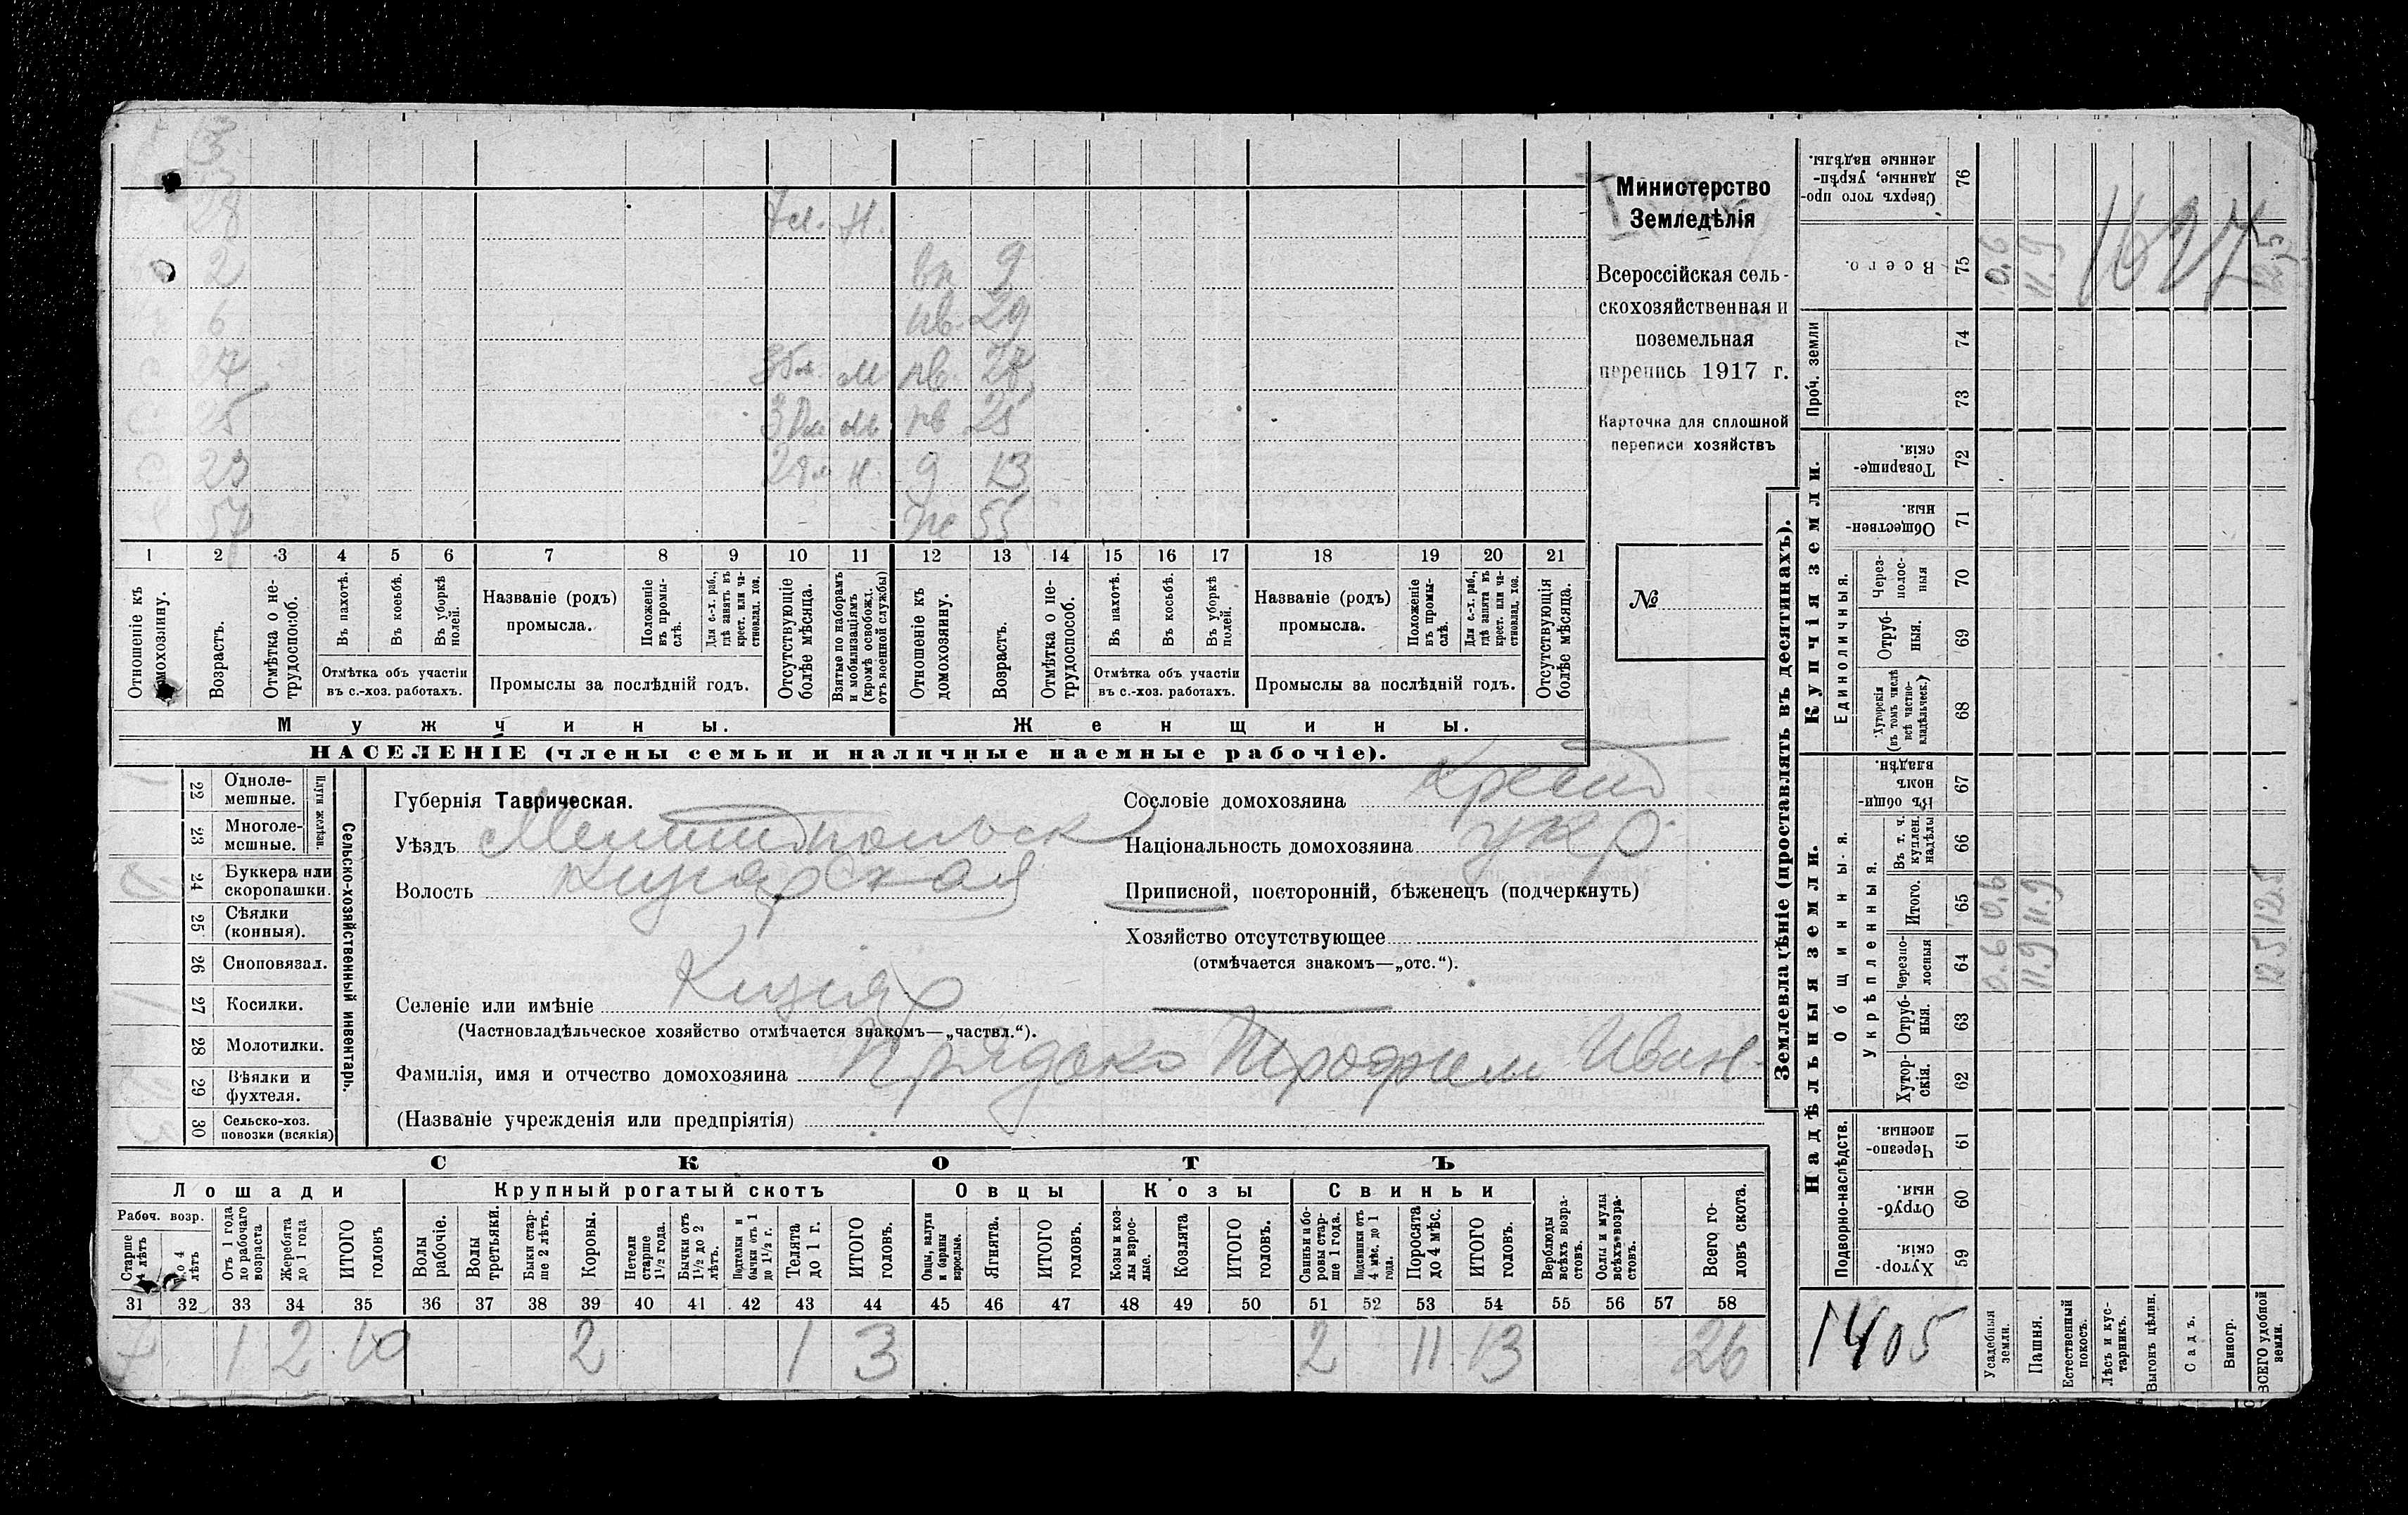 3
28
7 м. Н.
2
вн 9
6
нв. 29
27
М
нв. 28
25
м
нв 25
23
н.
9 13
57
же 55
1 2 3 4 5 6 7 8 9 10 11 12 13 14 15 16 17 18 19 20 21
Отношеніе къ домохозяину.
Возрастъ.
Отмѣтка о нетрудоспособ.
Въ пахотѣ.
Въ косьбѣ.
Въ уборкѣ полей.
Отмѣтка объ участіи въ с.-хоз. работахъ.
Названіе (родъ) промысла.
Положеніе въ промыслѣ.
Для с.-х. раб., гдѣ занятъ въ крест. или частновлад. хоз.
Промыслы за послѣдній годъ.
Отсутствующіе болѣе мѣсяца.
Взятые по наборамъ и мобилизаціямъ (кромѣ освобожд. отъ военной службы)
Отношеніе къ домохозяину.
Возрастъ.
Отмѣтка о нетрудоспособ.
Въ пахотѣ.
Въ косьбѣ.
Въ уборкѣ полей.
Отмѣтка объ участіи въ с.-хоз. работахъ.
Названіе (родъ) промысла.
Положеніе въ промыслѣ.
Для с.-х. раб., гдѣ занята въ крест. или частновлад. хоз.
Промыслы за послѣдній годъ.
Отсутствующія болѣе мѣсяца.
Мужчины. Женщины.
НАСЕЛЕНІЕ (члены семьи и наличные наемные рабочіе).
Министерство
Земледѣлія
Всероссійская сель-
скохозяйственная и
поземельная
перепись 1917 г.
Карточка для сплошной
переписи хозяйствъ
№
22 Одноле-
мешные.
23 Многоле-
мешные.
Плуги желѣзн.
24 Буккера или
скоропашки.
25 Сѣялки
(конныя).
26 Сноповязал.
27 Косилки.
28 Молотилки.
29 Вѣялки и
фухтеля.
30 Сельско-хоз.
повозки (всякія)
Сельско-хозяйственный инвентарь.
Губернія Таврическая.
Уѣздъ Мелитопольск
Волость Кизіярская
Селеніе или имѣніе Кизіяр
(Частновладѣльческое хозяйство отмѣчается знакомъ—„частвл.“).
Фамилія, имя и отчество домохозяина Прядько Трофим Иван.
(Названіе учрежденія или предпріятія)
Сословіе домохозяина Крест
Національность домохозяина укр.
Приписной, посторонній, бѣженецъ (подчеркнуть)
Хозяйство отсутствующее
(отмѣчается знакомъ—„отс.“).
СКОТЪ
Лошади Крупный рогатый скотъ Овцы Козы Свиньи
Рабоч. возр.
Старше 4 лѣтъ
До 4 лѣтъ
Отъ 1 года до рабочаго возраста
Жеребята до 1 года
ИТОГО головъ
Волы рабочіе.
Волы третьяки.
Быки старше 2 лѣтъ.
Коровы.
Нетели старше 1½ года.
Бычки отъ 1½ до 2 лѣтъ.
Подтелки и бычки отъ 1 до 1½ г.
Телята до 1 г.
ИТОГО головъ.
Овцы, валухи и бараны взрослые.
Ягнята.
ИТОГО головъ.
Козы и козлы взрослые.
Козлята
ИТОГО головъ.
Свиньи и боровы старше 1 года.
Подсвинки отъ 4 мѣс. до 1 года.
Поросята до 4 мѣс.
ИТОГО головъ.
Верблюды всѣхъ возрастовъ.
Ослы и мулы всѣхъ возрастовъ.
Всего головъ скота.
31 32 33 34 35 36 37 38 39 40 41 42 43 44 45 46 47 48 49 50 51 52 53 54 55 56 57 58
7 1 2 10 2 1 3 2 11 13 26
Землевладѣніе (проставлять въ десятинахъ).
Купчія земли.
Надѣльныя земли.
76 Сверхъ того проданные, укрѣпленные надѣлы.
75 Всего. 0.6 11.9 12.5
1627
Проч. земли
74
73
72 Товарищескія.
71 Общественныя.
Единоличныя.
70 Черезполосныя
69 Отрубныя.
68 Хуторскія (въ томъ числѣ всѣ частновладѣльческ.)
Общинныя.
67 Въ общинномъ владѣн.
Укрѣпленныя.
66 Въ т. ч. куплен. надѣлы
65 Итого. 0.6 11.9 12.5
64 Черезполосныя 0.6 11.9 12.5
63 Отрубныя.
62 Хуторскія.
Подворно-наслѣдств.
61 Черезполосныя.
60 Отрубныя.
59 Хуторскія.
1405
Усадебныя земли.
Пашня.
Естественный покосъ.
Лѣсъ и кустарникъ.
Выгонъ цѣлин.
Садъ.
Виногр.
ВСЕГО удобной земли.